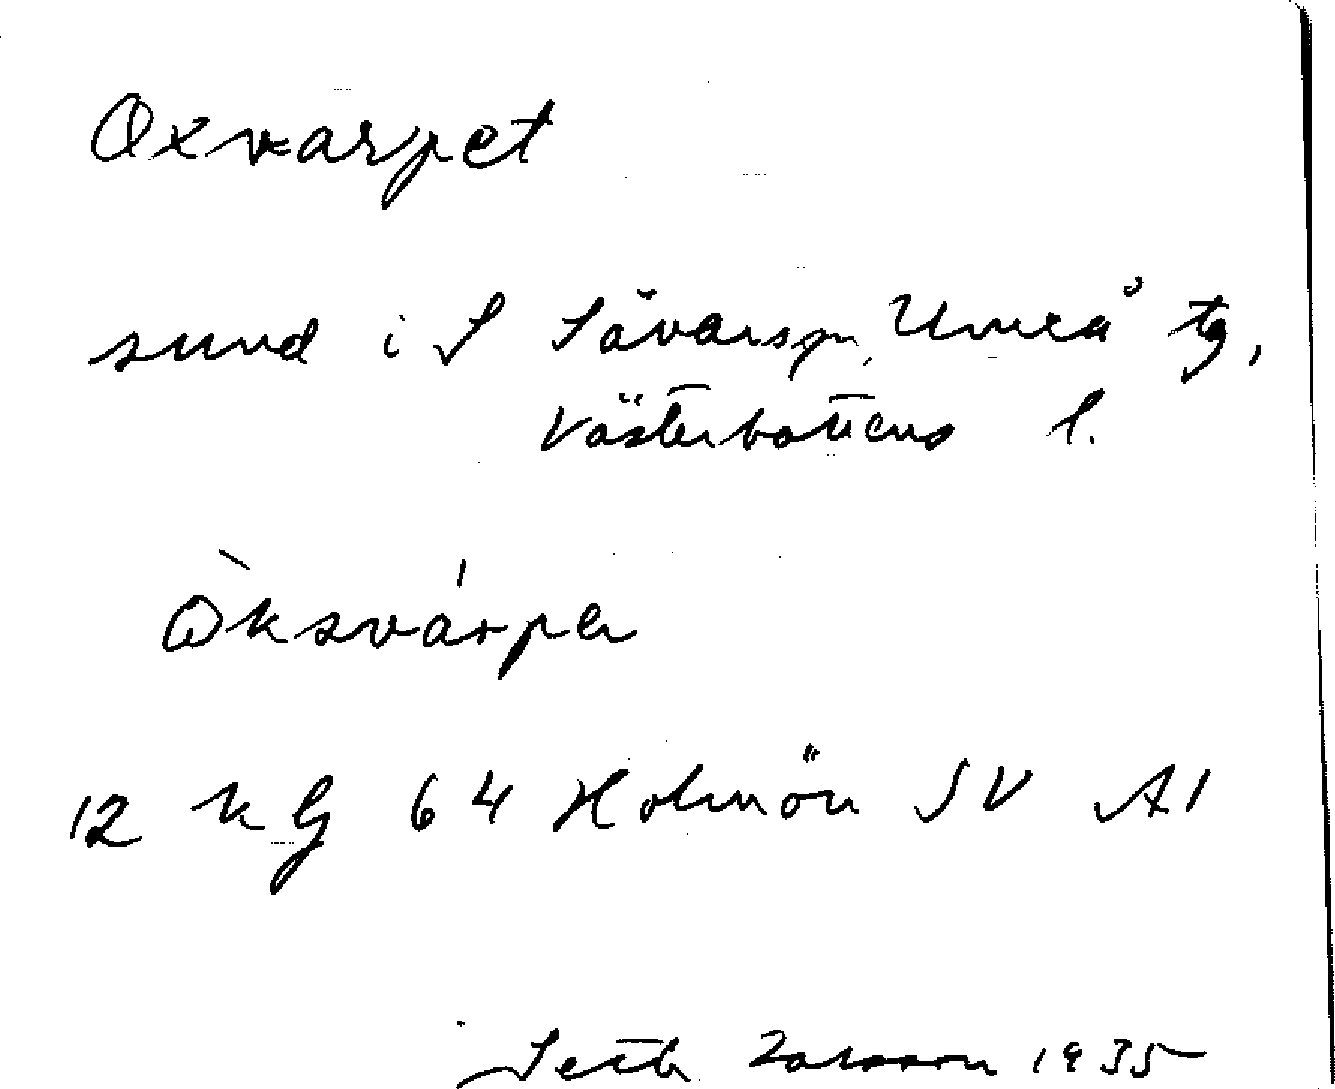 Oxvarpet
sund i S Sävar sn, Umeå tg,
Västerbottens l.
Òksvárpa
12 KG 64 Holmön SV A1
Seth Larsson 1935